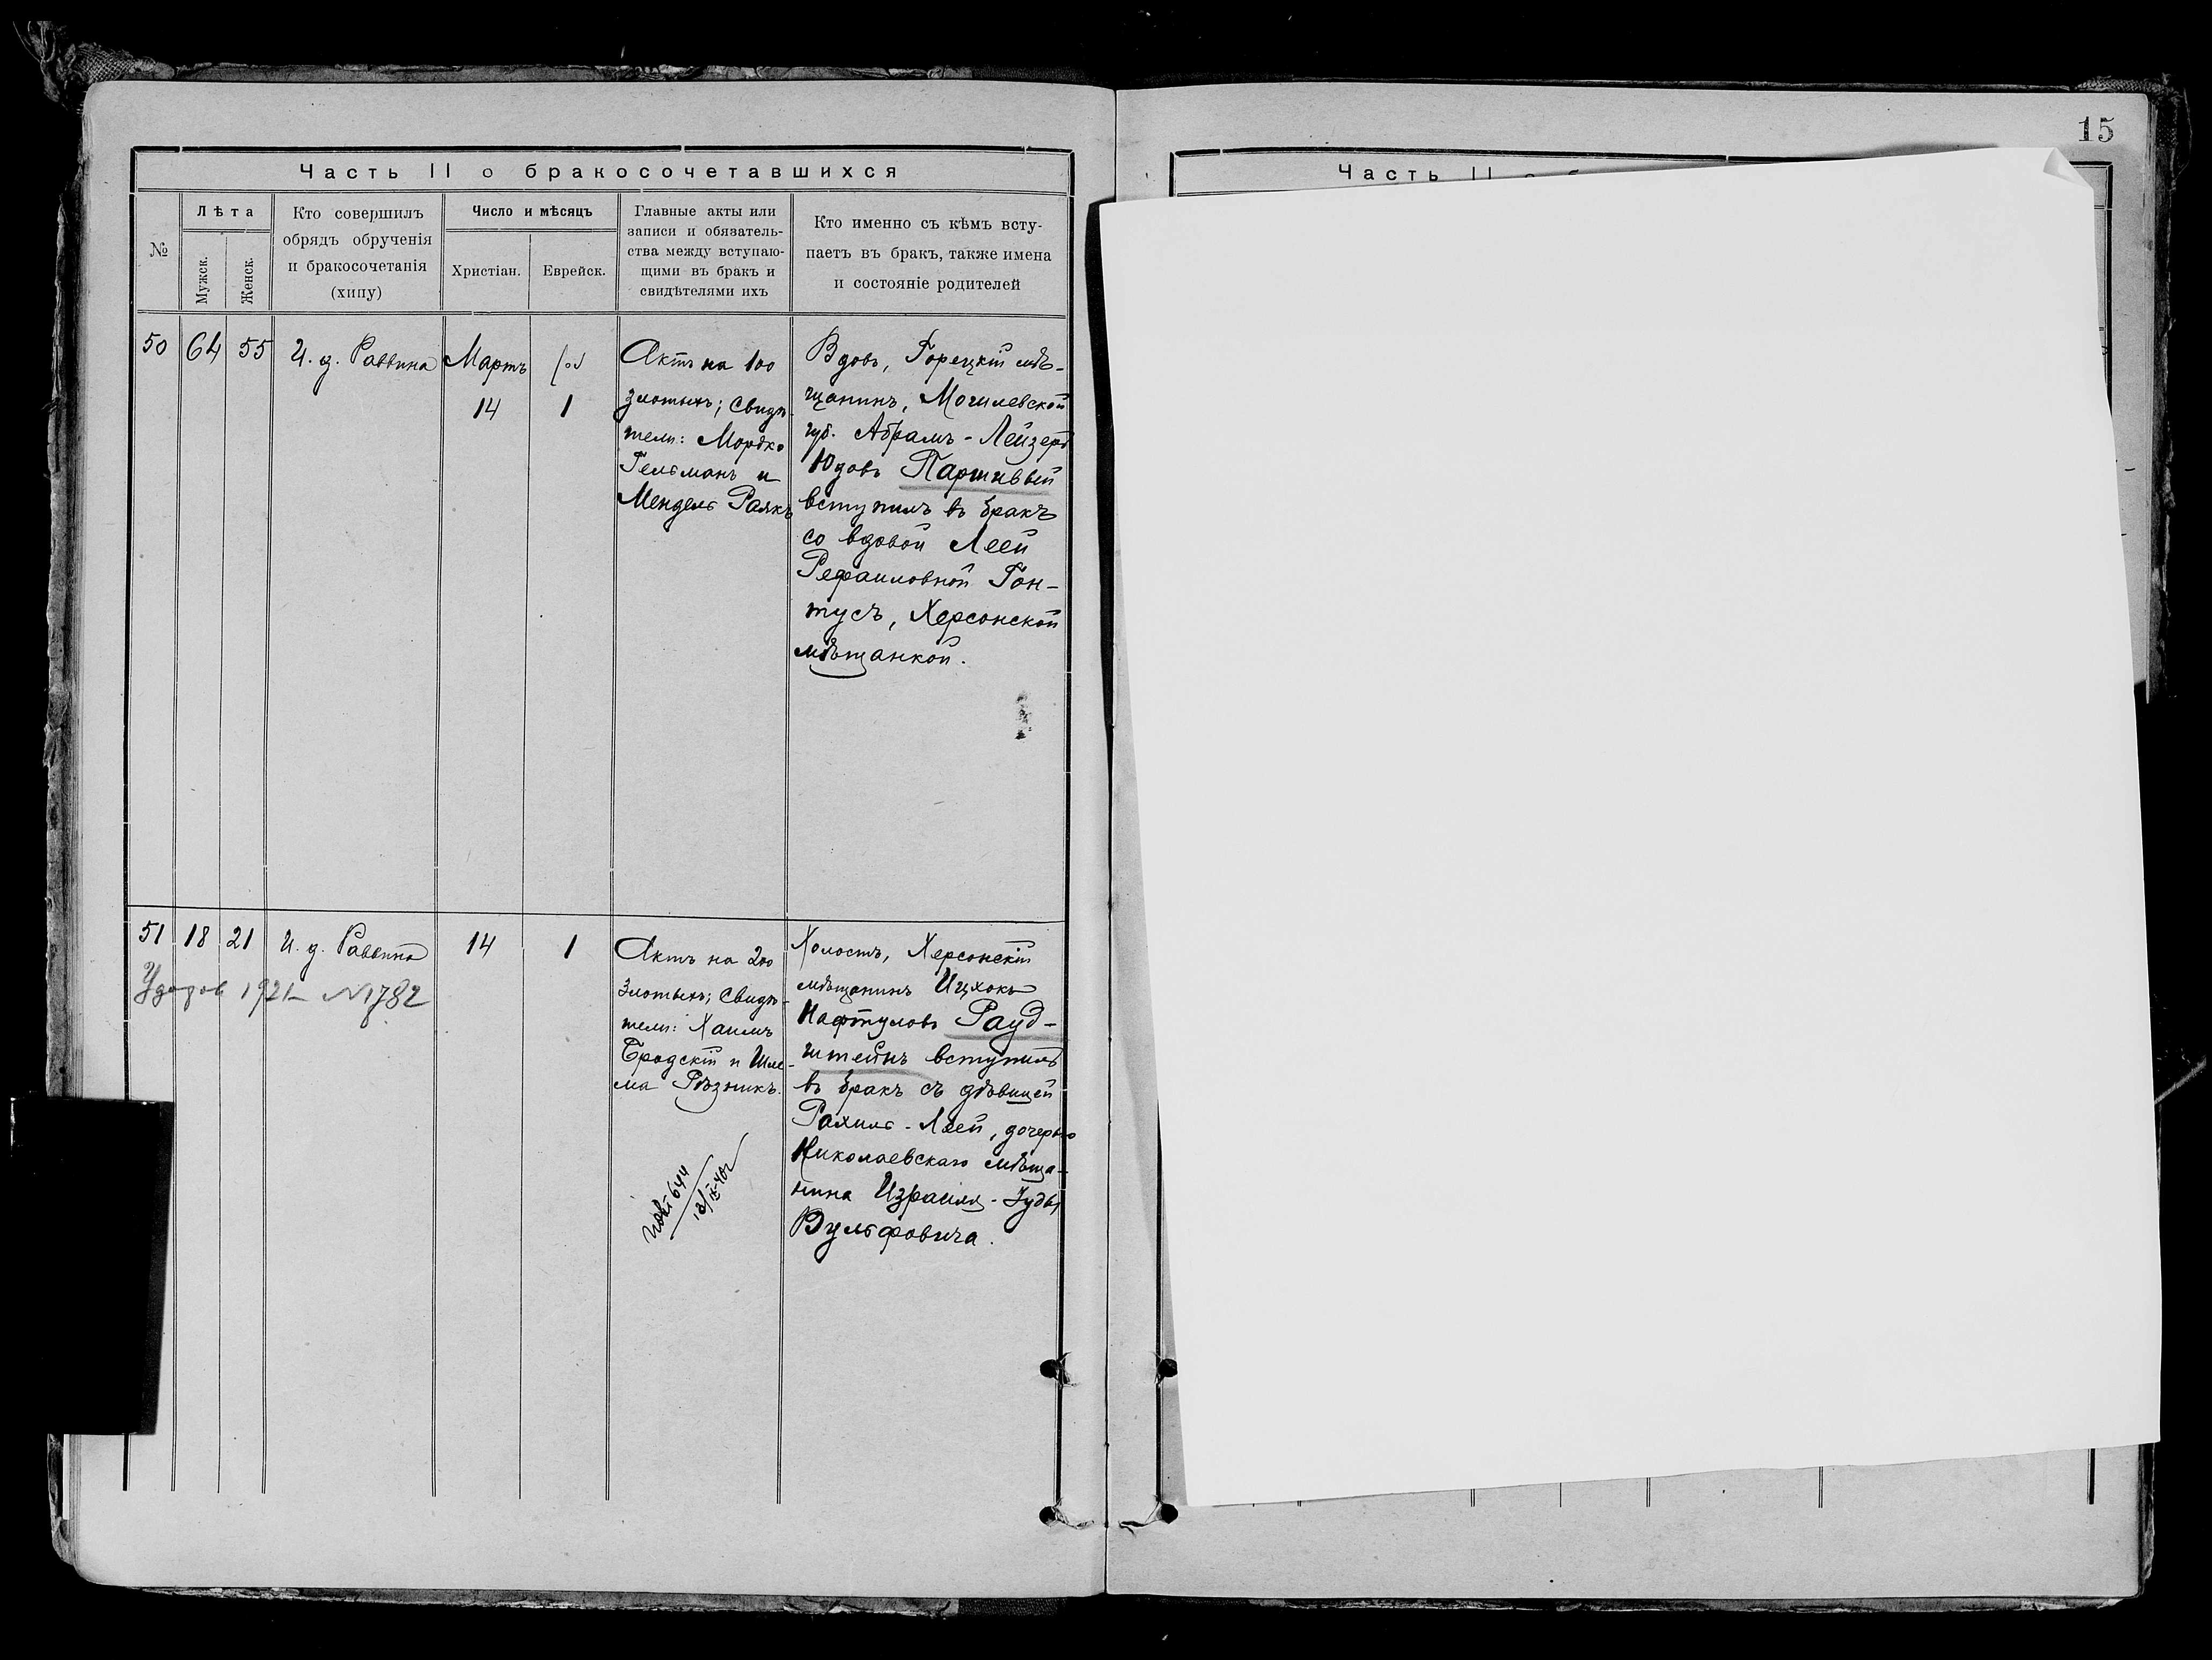 15
Часть II о бракосочетавшихся
№
Лѣта
Мужск.
Женск.
Кто совершилъ
обрядъ обрученія
и бракосочетанія
(хипу)
Число и мѣсяцъ
Христіан.
Еврейск.
Главные акты или
записи и обязатель-
ства между вступаю-
щими въ бракъ и
свидѣтелями ихъ
Кто именно съ кѣмъ всту-
паетъ въ бракъ, также имена
и состояніе родителей
50
64
55
И. д. Раввина
Мартъ
14
1
Актъ на 100
злотыхъ; Свидѣ-
тели: Мордко
Гельманъ и
Мендель
Вдовъ, Горецкій мѣ-
щанинъ, Могилевской
губ. Абрамъ-Лейзеръ
Юдовъ Паршивый
вступилъ въ бракъ
со вдовой Леей
Рефаиловной Гон-
тусъ, Херсонской
мѣщанкой.
51
18
21
И. д. Раввина
14
1
1921 N1782
Актъ на 200
Злотыхъ; Свидѣ-
тели: Хаимъ
Бродскій и Шле-
ма Рѣзникъ.
644
Холостъ, Херсонскій
мѣщанинъ Ицхокъ
Нафтуловъ Рауд-
штейнъ вступилъ
въ бракъ съ дѣвицей
Рахиль-Леей, дочерью
Николаевскаго мѣща-
нина Израиля-Іуды
Вульфовича.
Часть II